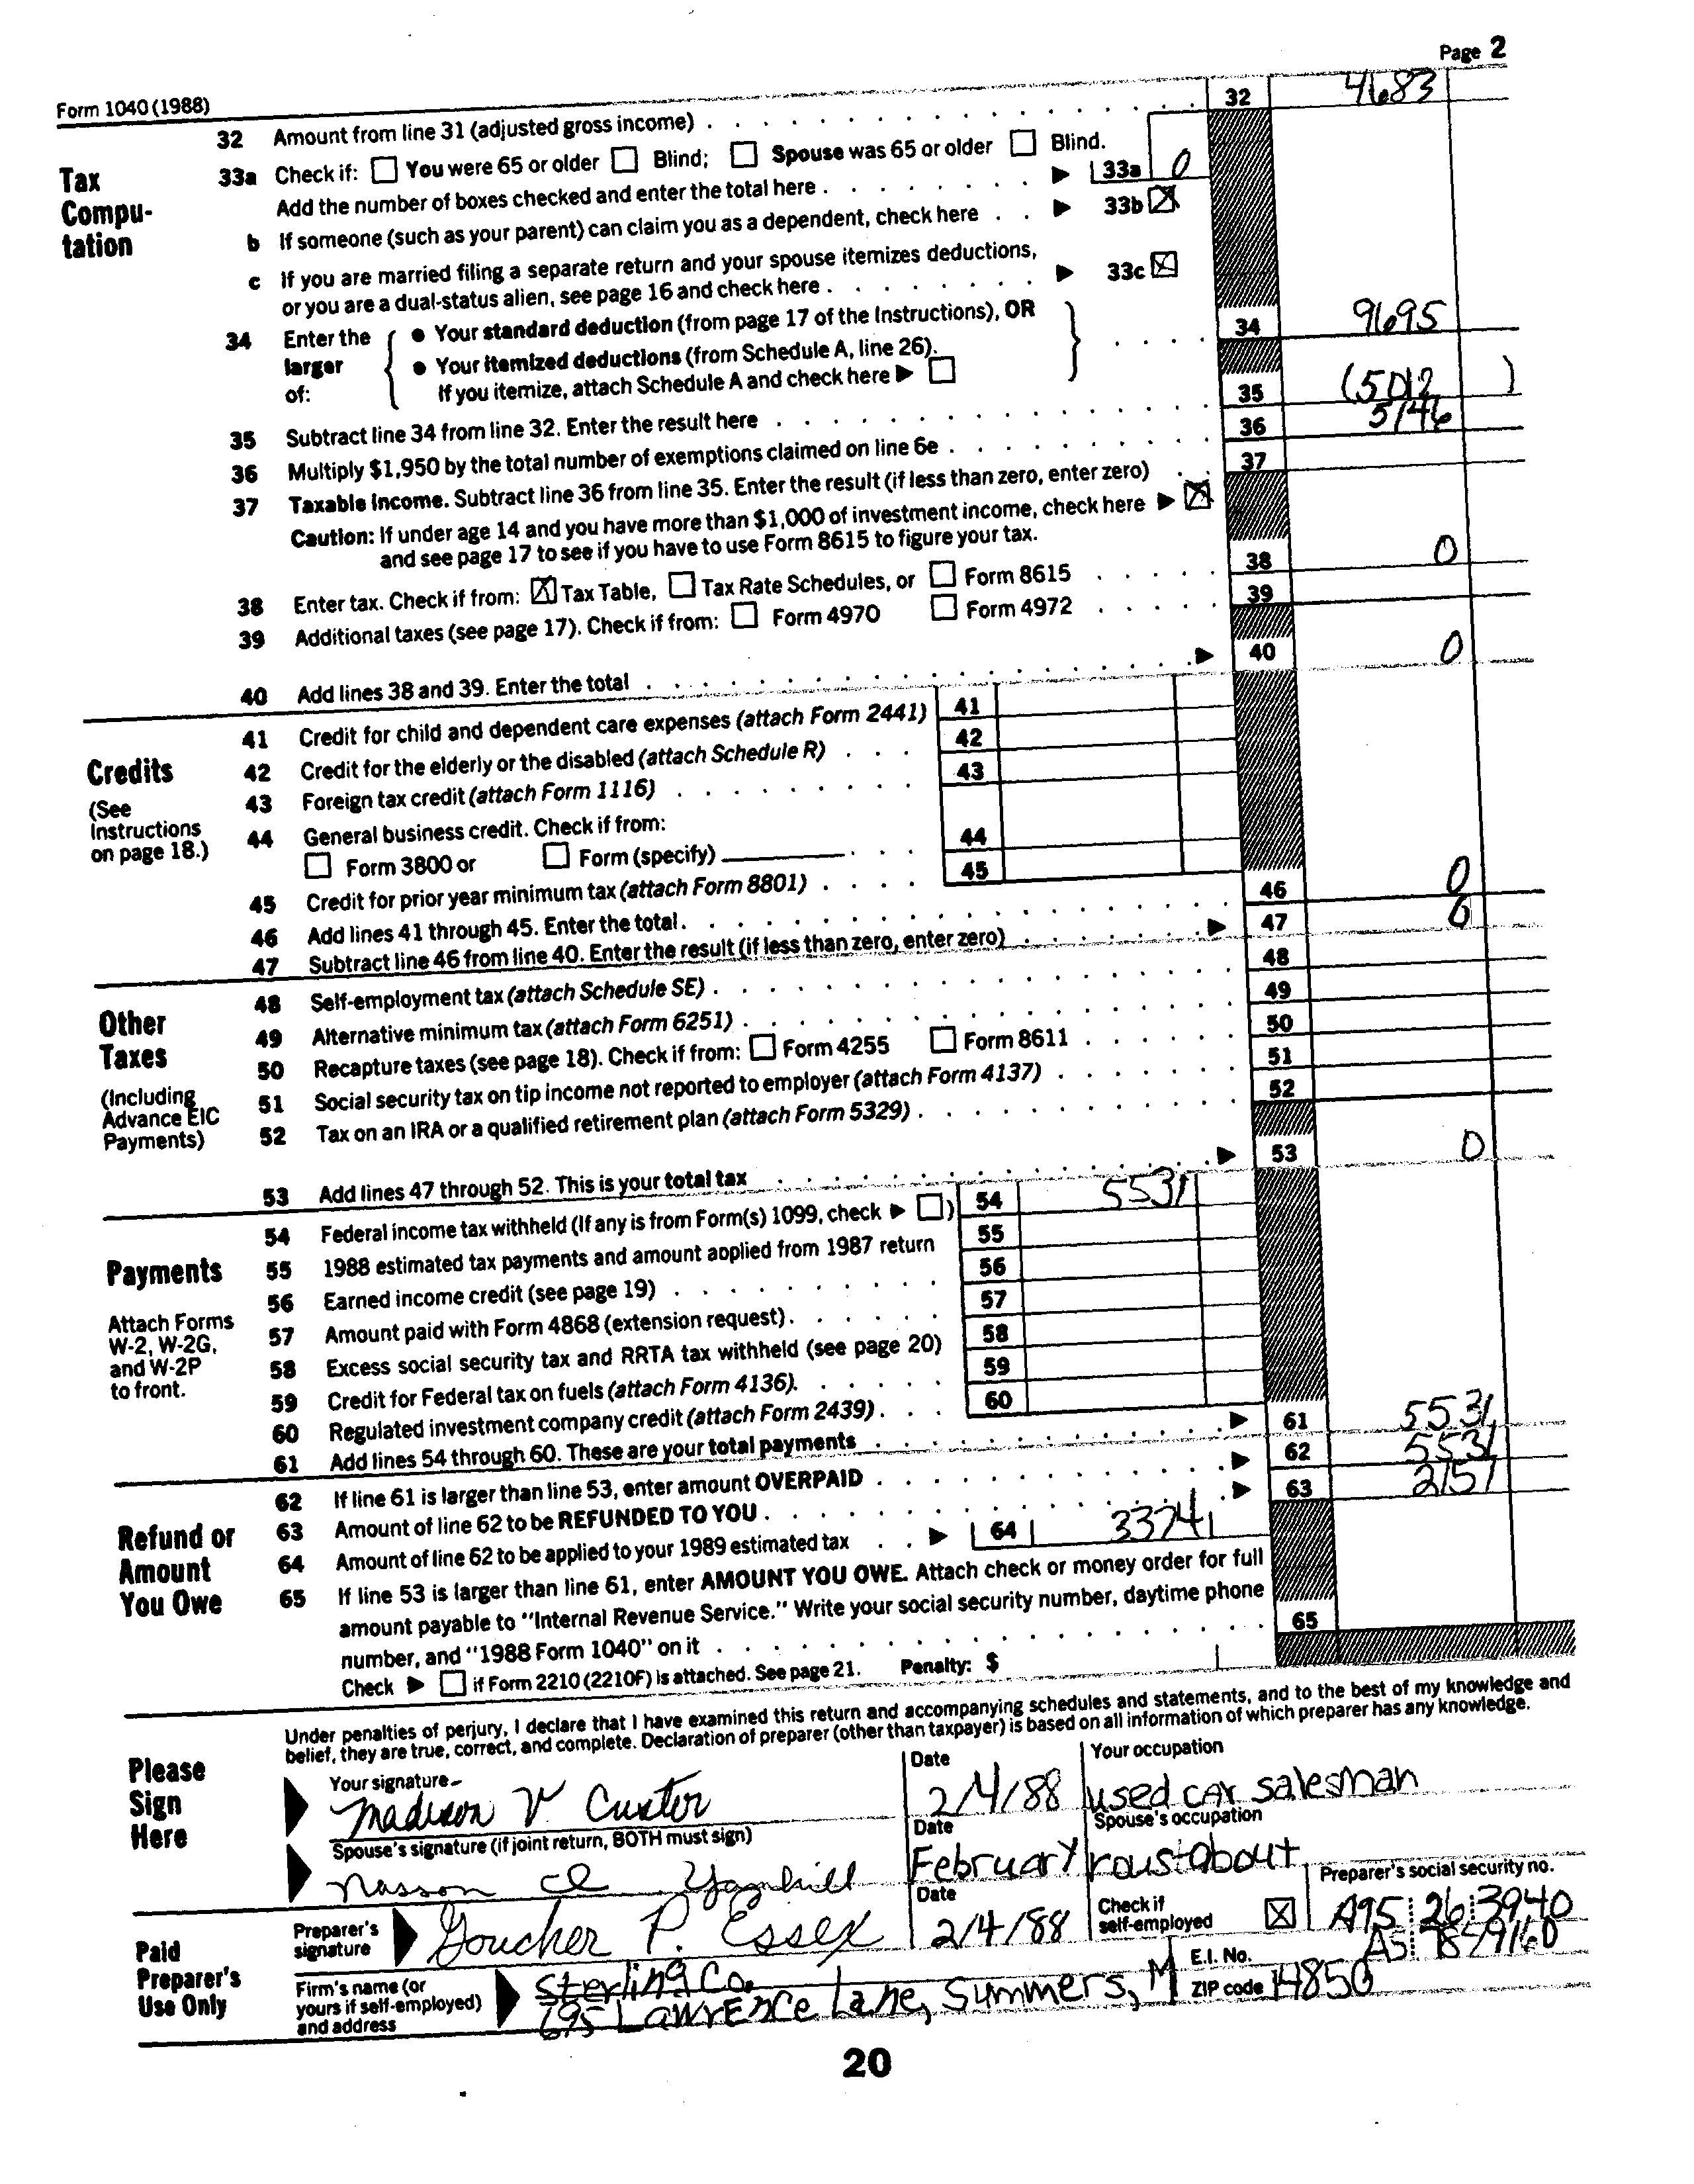 Page 2
Form 1040 (1988)
32 Amount from line 31 (adjusted gross income) . . . 32 4683
Tax Compu-tation
33a Check if: You were 65 or older Blind; Spouse was 65 or older Blind.
Add the number of boxes checked and enter the total here . . . 33a 0
b If someone (such as your parent) can claim you as a dependent, check here . . 33b X
c If you are married filing a separate return and your spouse itemizes deductions,
or you are a dual-status alien, see page 16 and check here . . . 33c X
34 Enter the larger of: { • Your standard deduction (from page 17 of the Instructions), OR
• Your itemized deductions (from Schedule A, line 26).
If you itemize, attach Schedule A and check here } . . . 34 9695
35 Subtract line 34 from line 32. Enter the result here . . . 35 (5012 )
36 Multiply $1,950 by the total number of exemptions claimed on line 6e . . . 36 5146
37 Taxable income. Subtract line 36 from line 35. Enter the result (if less than zero, enter zero) . . 37
Caution: If under age 14 and you have more than $1,000 of investment income, check here X
and see page 17 to see if you have to use Form 8615 to figure your tax.
38 Enter tax. Check if from: X Tax Table, Tax Rate Schedules, or Form 8615 . . . 38 0
39 Additional taxes (see page 17). Check if from: Form 4970 Form 4972 . . . 39
40 Add lines 38 and 39. Enter the total . . . 40 0
Credits
(See Instructions on page 18.)
41 Credit for child and dependent care expenses (attach Form 2441) 41
42 Credit for the elderly or the disabled (attach Schedule R) . . . 42
43 Foreign tax credit (attach Form 1116) . . . 43
44 General business credit. Check if from:
Form 3800 or Form (specify) . . . 44
45 Credit for prior year minimum tax (attach Form 8801) . . . 45
46 Add lines 41 through 45. Enter the total . . . 46 0
47 Subtract line 46 from line 40. Enter the result (if less than zero, enter zero) . . . 47 0
Other Taxes
(Including Advance EIC Payments)
48 Self-employment tax (attach Schedule SE) . . . 48
49 Alternative minimum tax (attach Form 6251) . . . 49
50 Recapture taxes (see page 18). Check if from: Form 4255 Form 8611 . . . 50
51 Social security tax on tip income not reported to employer (attach Form 4137) . . . 51
52 Tax on an IRA or a qualified retirement plan (attach Form 5329) . . . 52
53 Add lines 47 through 52. This is your total tax . . . 53 0
Payments
Attach Forms W-2, W-2G, and W-2P to front.
54 Federal income tax withheld (If any is from Form(s) 1099, check ) 54 5531
55 1988 estimated tax payments and amount applied from 1987 return 55
56 Earned income credit (see page 19) . . . 56
57 Amount paid with Form 4868 (extension request) . . . 57
58 Excess social security tax and RRTA tax withheld (see page 20) 58
59 Credit for Federal tax on fuels (attach Form 4136). . . . 59
60 Regulated investment company credit (attach Form 2439) . . . 60
61 Add lines 54 through 60. These are your total payments . . . 61 5531
Refund or Amount You Owe
62 If line 61 is larger than line 53, enter amount OVERPAID . . . 62 5531
63 Amount of line 62 to be REFUNDED TO YOU . . . 63 2157
64 Amount of line 62 to be applied to your 1989 estimated tax . . 64 3374
65 If line 53 is larger than line 61, enter AMOUNT YOU OWE. Attach check or money order for full
amount payable to "Internal Revenue Service." Write your social security number, daytime phone
number, and "1988 Form 1040" on it . . . 65
Check if Form 2210 (2210F) is attached. See page 21. Penalty: $
Please Sign Here
Under penalties of perjury, I declare that I have examined this return and accompanying schedules and statements, and to the best of my knowledge and
belief, they are true, correct, and complete. Declaration of preparer (other than taxpayer) is based on all information of which preparer has any knowledge.
Your signature Date Your occupation
Madison V. Custer 2/4/88 used car salesman
Spouse's signature (if joint return, BOTH must sign) Date Spouse's occupation
Nasson Yamhill February roustabout
Paid Preparer's Use Only
Preparer's signature Goucher P. Essex Date 2/4/88 Check if self-employed X Preparer's social security no. A95 26 3940
Firm's name (or yours if self-employed) and address Sterling Co. E.I. No.
695 Lawrence Lane, Summers, M ZIP code 14850
20